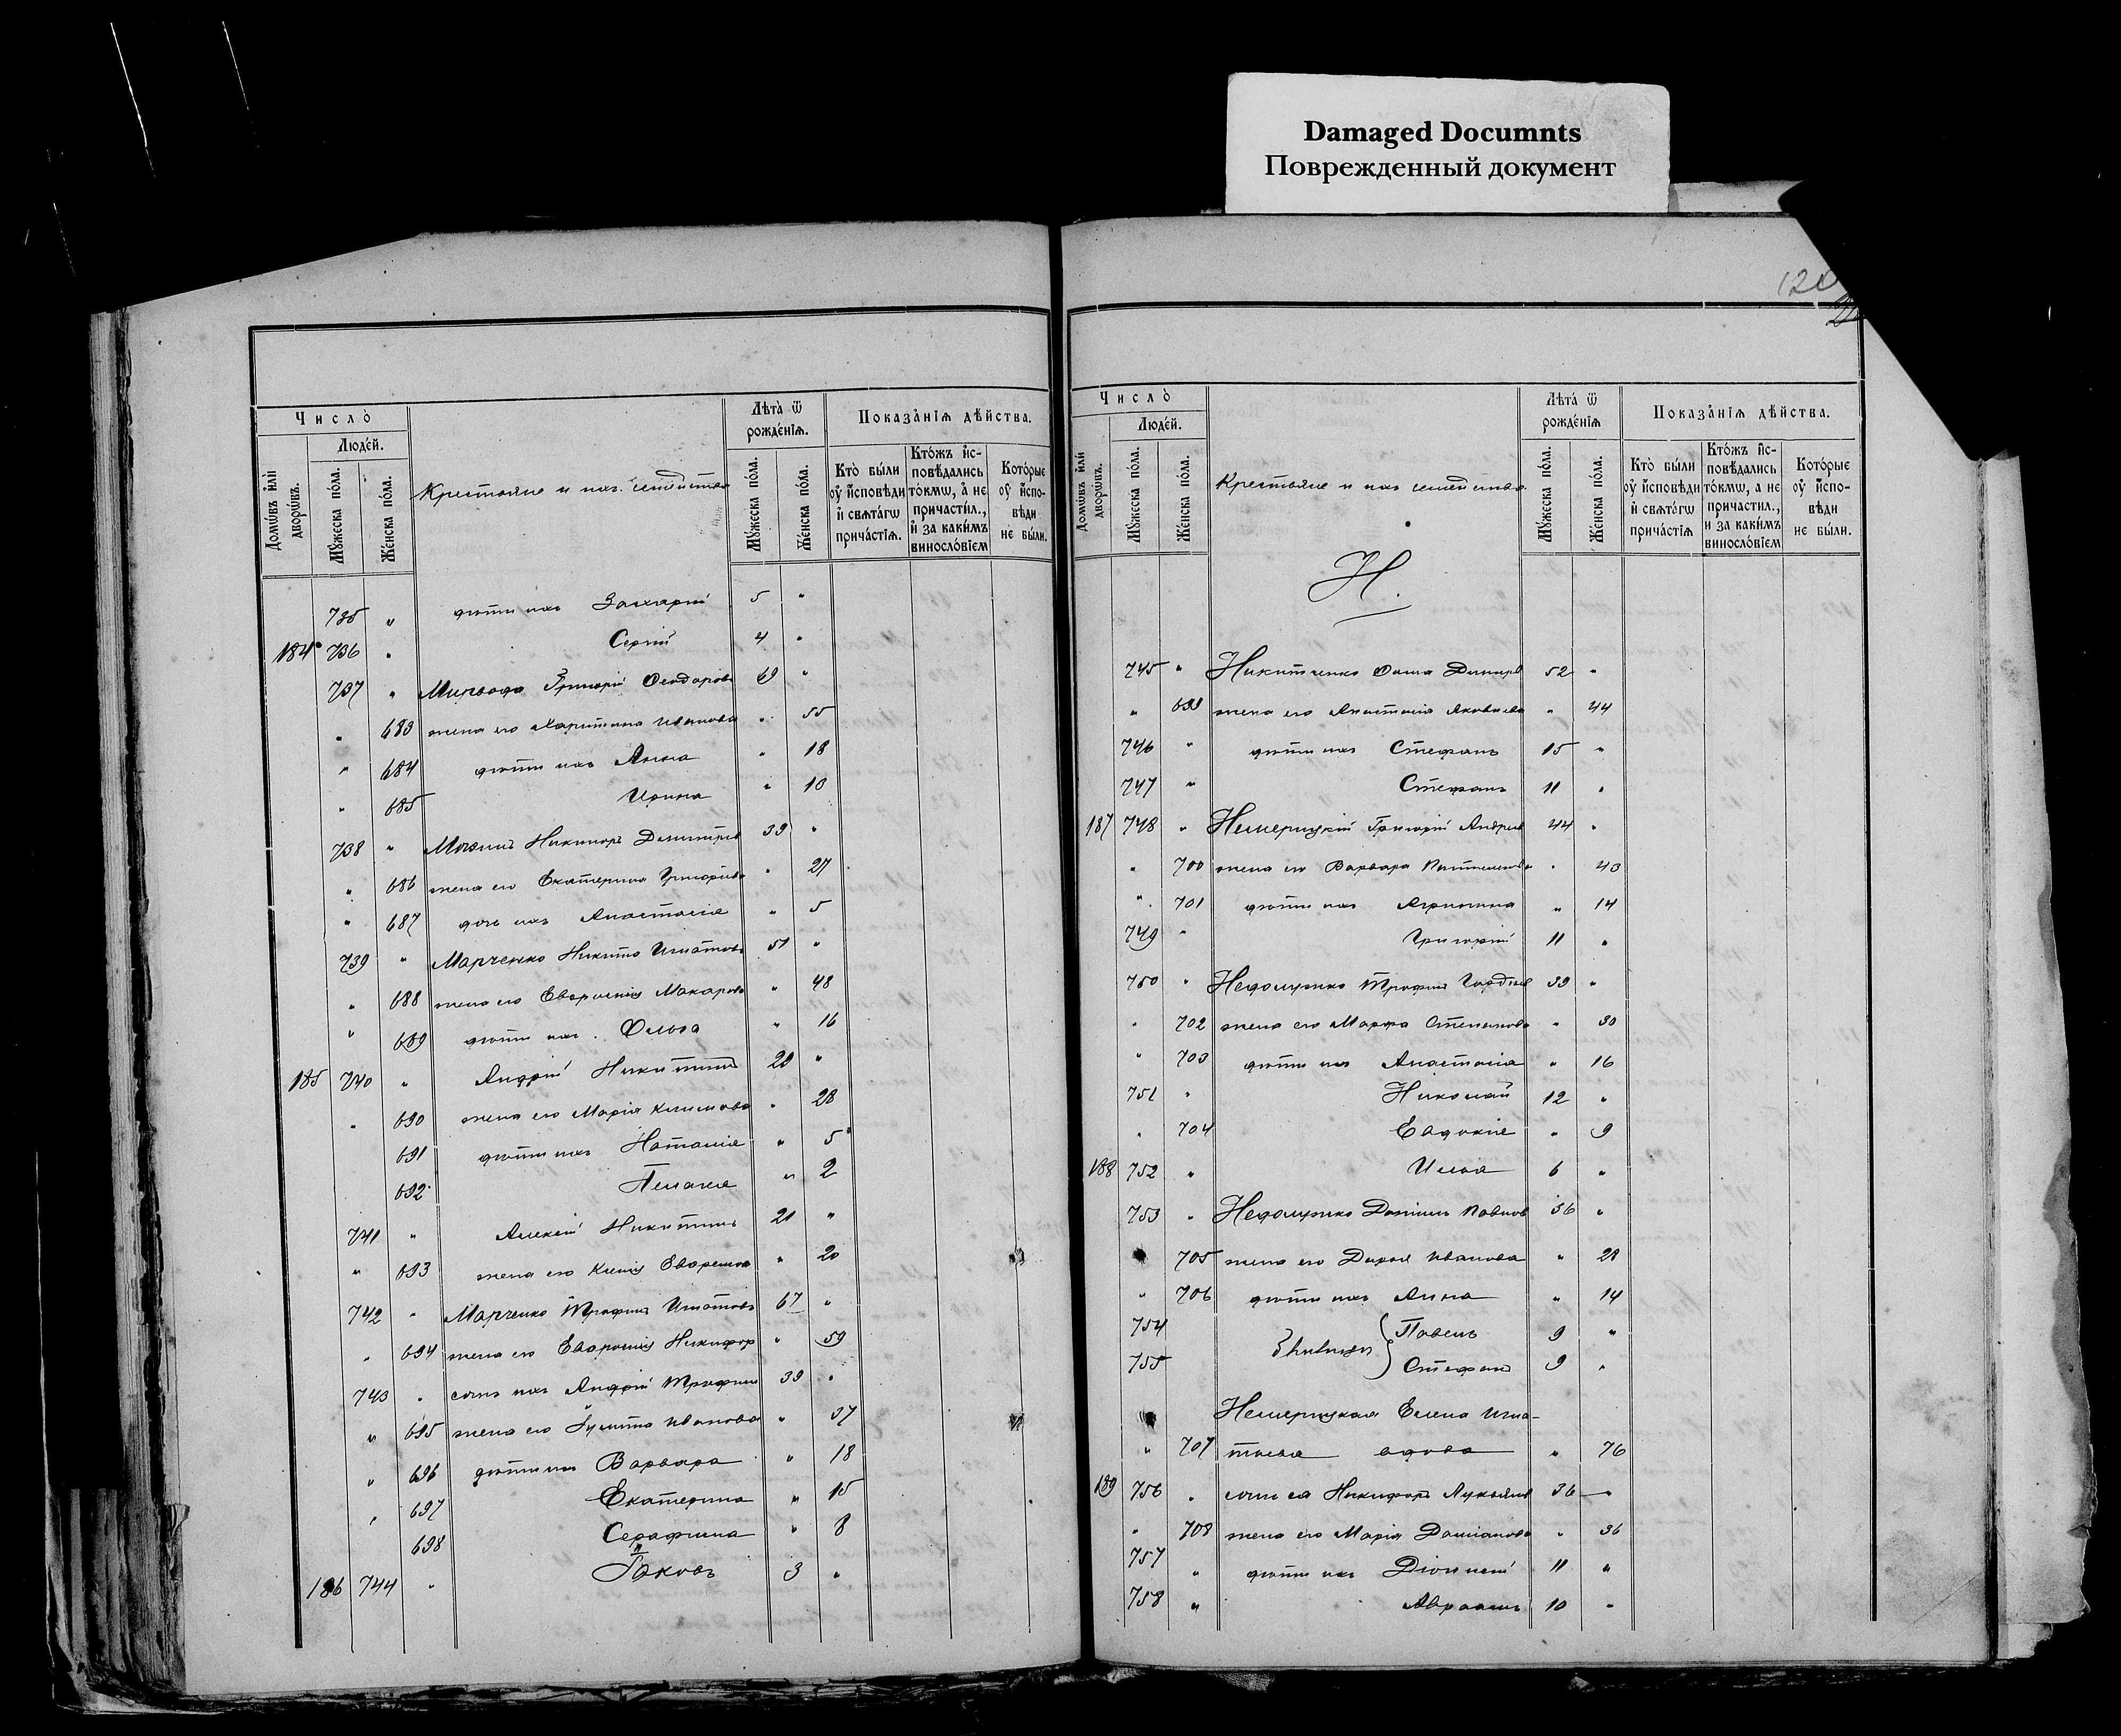 Damaged Documnts
Поврежденный документ
120
Число̀
Люде́й.
Домѡ́въ и҆лѝ дворѡ́въ.
Мꙋ́жеска по́ла.
Же́нска по́ла.
Крестьяне и ихъ семейства
Лѣта̀ ѿ рожде́нїѧ.
Мꙋ́жеска по́ла.
Же́нска по́ла.
Показа́нїѧ дѣ́йства.
Кто̀ бы́ли оу҆ и҆сповѣди и҆ свѧта́гѡ прича́стїѧ.
Кто́жъ и҆сповѣдались то́кмѡ, а҆ не причасти́л., и҆ за каки́мъ виносло́вїемъ
Кото́рые оу҆ и҆сповѣди не бы́ли.
735 " дѣти ихъ Захарій 5 "
184 736 " Сергій 4 "
737 " Григорій Феодоровъ 69 "
" 683 жена его Харитина Иванова " 55
" 684 дѣти ихъ Анна " 18
" 685 Ирина " 10
738 " Никифоръ Димитріевъ 39 "
" 686 жена его Екатерина Григорьева " 27
" 687 дочь ихъ Анастасія " 5
739 " Марченко Никита Игнатовъ 51 "
" 688 жена его Евфросинія Макарова " 48
" 689 дѣти ихъ Ольга " 16
185 740 " Андрей Никитинъ 28 "
" 690 жена его Марія Климова " 28
691 дѣти ихъ Наталія " 5
692 Пелагія " 2
741 " Алексій Никитинъ 21 "
" 693 жена его Ксенія " 20
742 " Марченко Трофимъ Игнатовъ 67 "
" 694 жена его Евфросинія Никифор " 59
743 " сынъ ихъ Андрей Трофим 39 "
" 695 жена его Іулитта Иванова " 37
" 696 дѣти ихъ Варвара " 18
" 697 Екатерина " 15
698 Серафима " 8
186 744 " Іаковъ 3 "
Число̀
Люде́й.
Домѡ́въ и҆лѝ дворѡ́въ.
Мꙋ́жеска по́ла.
Же́нска по́ла.
Крестьяне и ихъ семейства
Лѣта̀ ѿ рожде́нїѧ
Мꙋ́жеска по́ла.
Же́нска по́ла.
Показа́нїѧ дѣ́йства.
Кто̀ бы́ли оу҆ и҆сповѣди и҆ свѧта́гѡ прича́стїѧ
Кто́жъ и҆сповѣдались то́кмѡ, а не причастил., и за каки́мъ винословїем
Кото́рые оу҆ и҆сповѣди не бы́ли.
Н.
745 " Никитченко Фома 52 "
" 699 жена его Анастасія Яковлева " 44
746 " дѣти ихъ Стефанъ 15 "
747 " Стефанъ 11 "
187 748 " Немерицкій Григорій Андреев 44 "
" 700 жена его Варвара " 43
" 701 дѣти ихъ Агрипина " 14
749 " Григорій 11 "
750 " Недолужко Трофимъ Гордіев 39 "
" 702 жена его Марфа Степанова " 30
" 703 дѣти ихъ Анастасія " 16
751 " Николай 12 "
" 704 Евдокія " 9
188 752 " Илья 6 "
753 " Недолужко Даніилъ Павлов 36 "
705 жена его Дарья Иванова " 28
" 706 дѣти ихъ Анна " 14
754 Близнецы Павелъ 9 "
755 Стефанъ 9 "
Немерицкая Елена Игна-
" 707 тьева вдова " 76
189 756 " сынъ ея Никифоръ Лукьянов 36 "
" 708 жена его Марія Даміанова " 36
757 " дѣти ихъ Діонисій 11 "
758 " Авраамъ 10 "